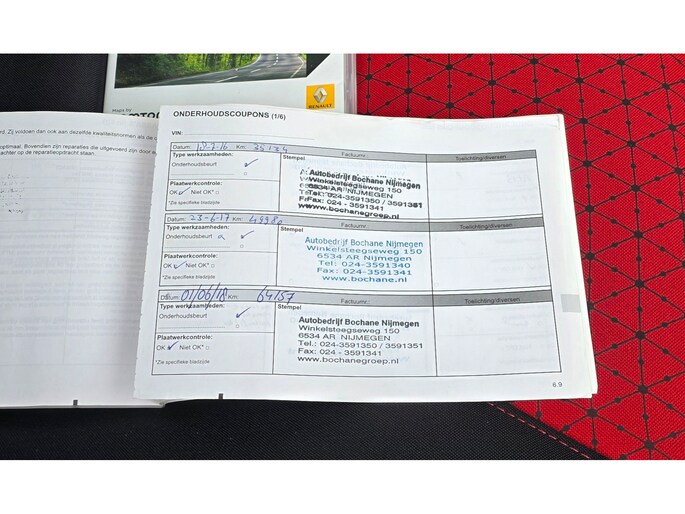 Maps by
RENAULT
ONDERHOUDSCOUPONS (1/6)
VIN:
Datum: Km: 35134
Type werkzaamheden: Stempel Factuurnr.: Toelichting/diversen
Onderhoudsbeurt
Autobedrijf Bochane Nijmegen
Winkelsteegseweg 150
6534 AR Nijmegen
Tel.: 024-3591350 / 3591351
Fax: 024 - 3591341
www.bochanegroep.nl
Plaatwerkcontrole:
OK Niet OK*
*Zie specifieke bladzijde
Datum: 23-6-17 Km:
Type werkzaamheden: Stempel Factuurnr.: Toelichting/diversen
Onderhoudsbeurt
Autobedrijf Bochane Nijmegen
Winkelsteegseweg 150
6534 AR Nijmegen
Tel: 024-3591340
Fax: 024-3591341
www.bochane.nl
Plaatwerkcontrole:
OK Niet OK*
*Zie specifieke bladzijde
Datum: 01/06/18 Km: 64157
Type werkzaamheden: Stempel Factuurnr.: Toelichting/diversen
Onderhoudsbeurt
Autobedrijf Bochane Nijmegen
Winkelsteegseweg 150
6534 AR NIJMEGEN
Tel.: 024-3591350 / 3591351
Fax: 024 - 3591341
www.bochanegroep.nl
Plaatwerkcontrole:
OK Niet OK*
*Zie specifieke bladzijde
6.9